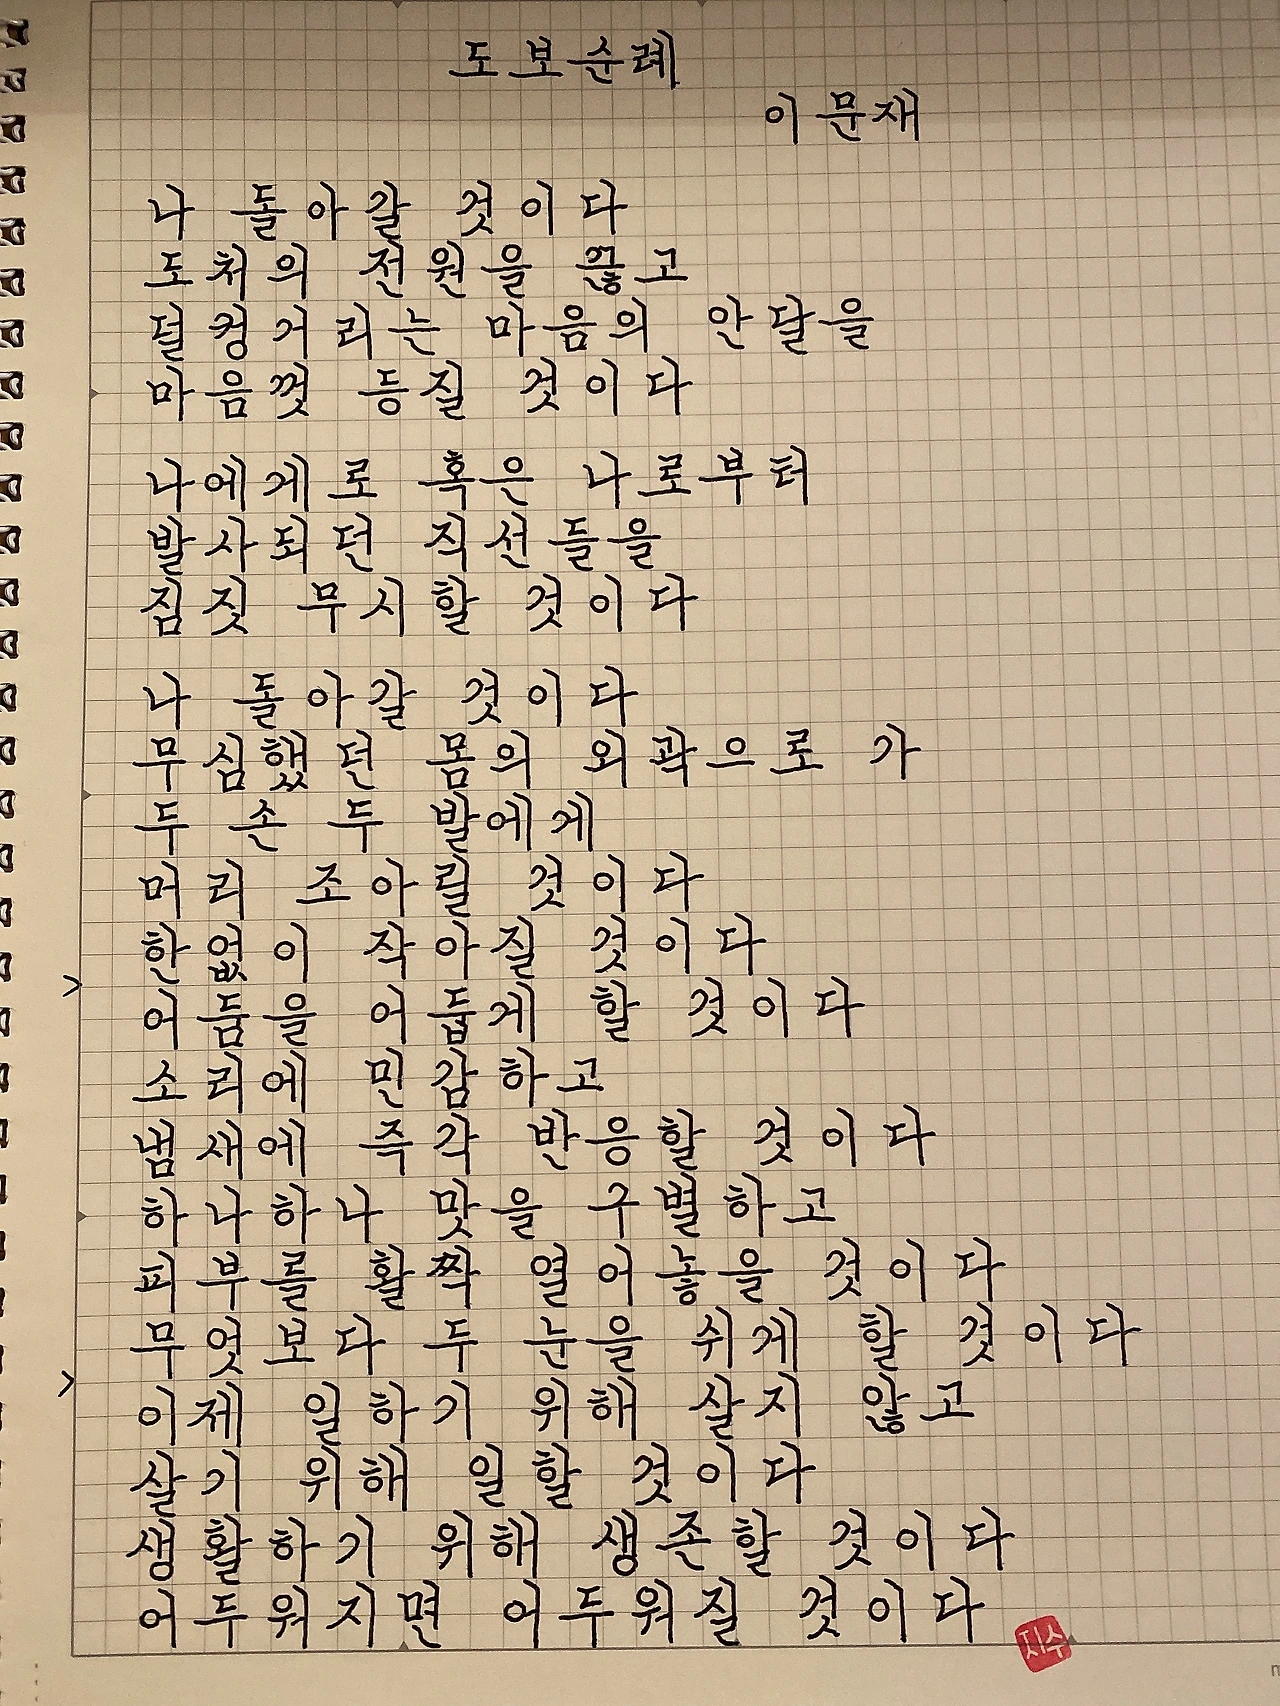 도보순례
이문재
나 돌아갈 것이다
도처의 전원을 끊고
덜컹거리는 마음의 안달을
마음껏 등질 것이다
나에게로 혹은 나로부터
발사되던 직선들을
짐짓 무시할 것이다
나 돌아갈 것이다
무심했던 몸의 외곽으로 가
두 손 두 발에게
머리 조아릴 것이다
한없이 작아질 것이다
>
어둠을 어둡게 할 것이다
소리에 민감하고
냄새에 즉각 반응할 것이다
하나하나 맛을 구별하고
피부를 활짝 열어놓을 것이다
무엇보다 두 눈을 쉬게 할 것이다
>
이제 일하기 위해 살지 않고
살기 위해 일할 것이다
생활하기 위해 생존할 것이다
어두워지면 어두워질 것이다
지수